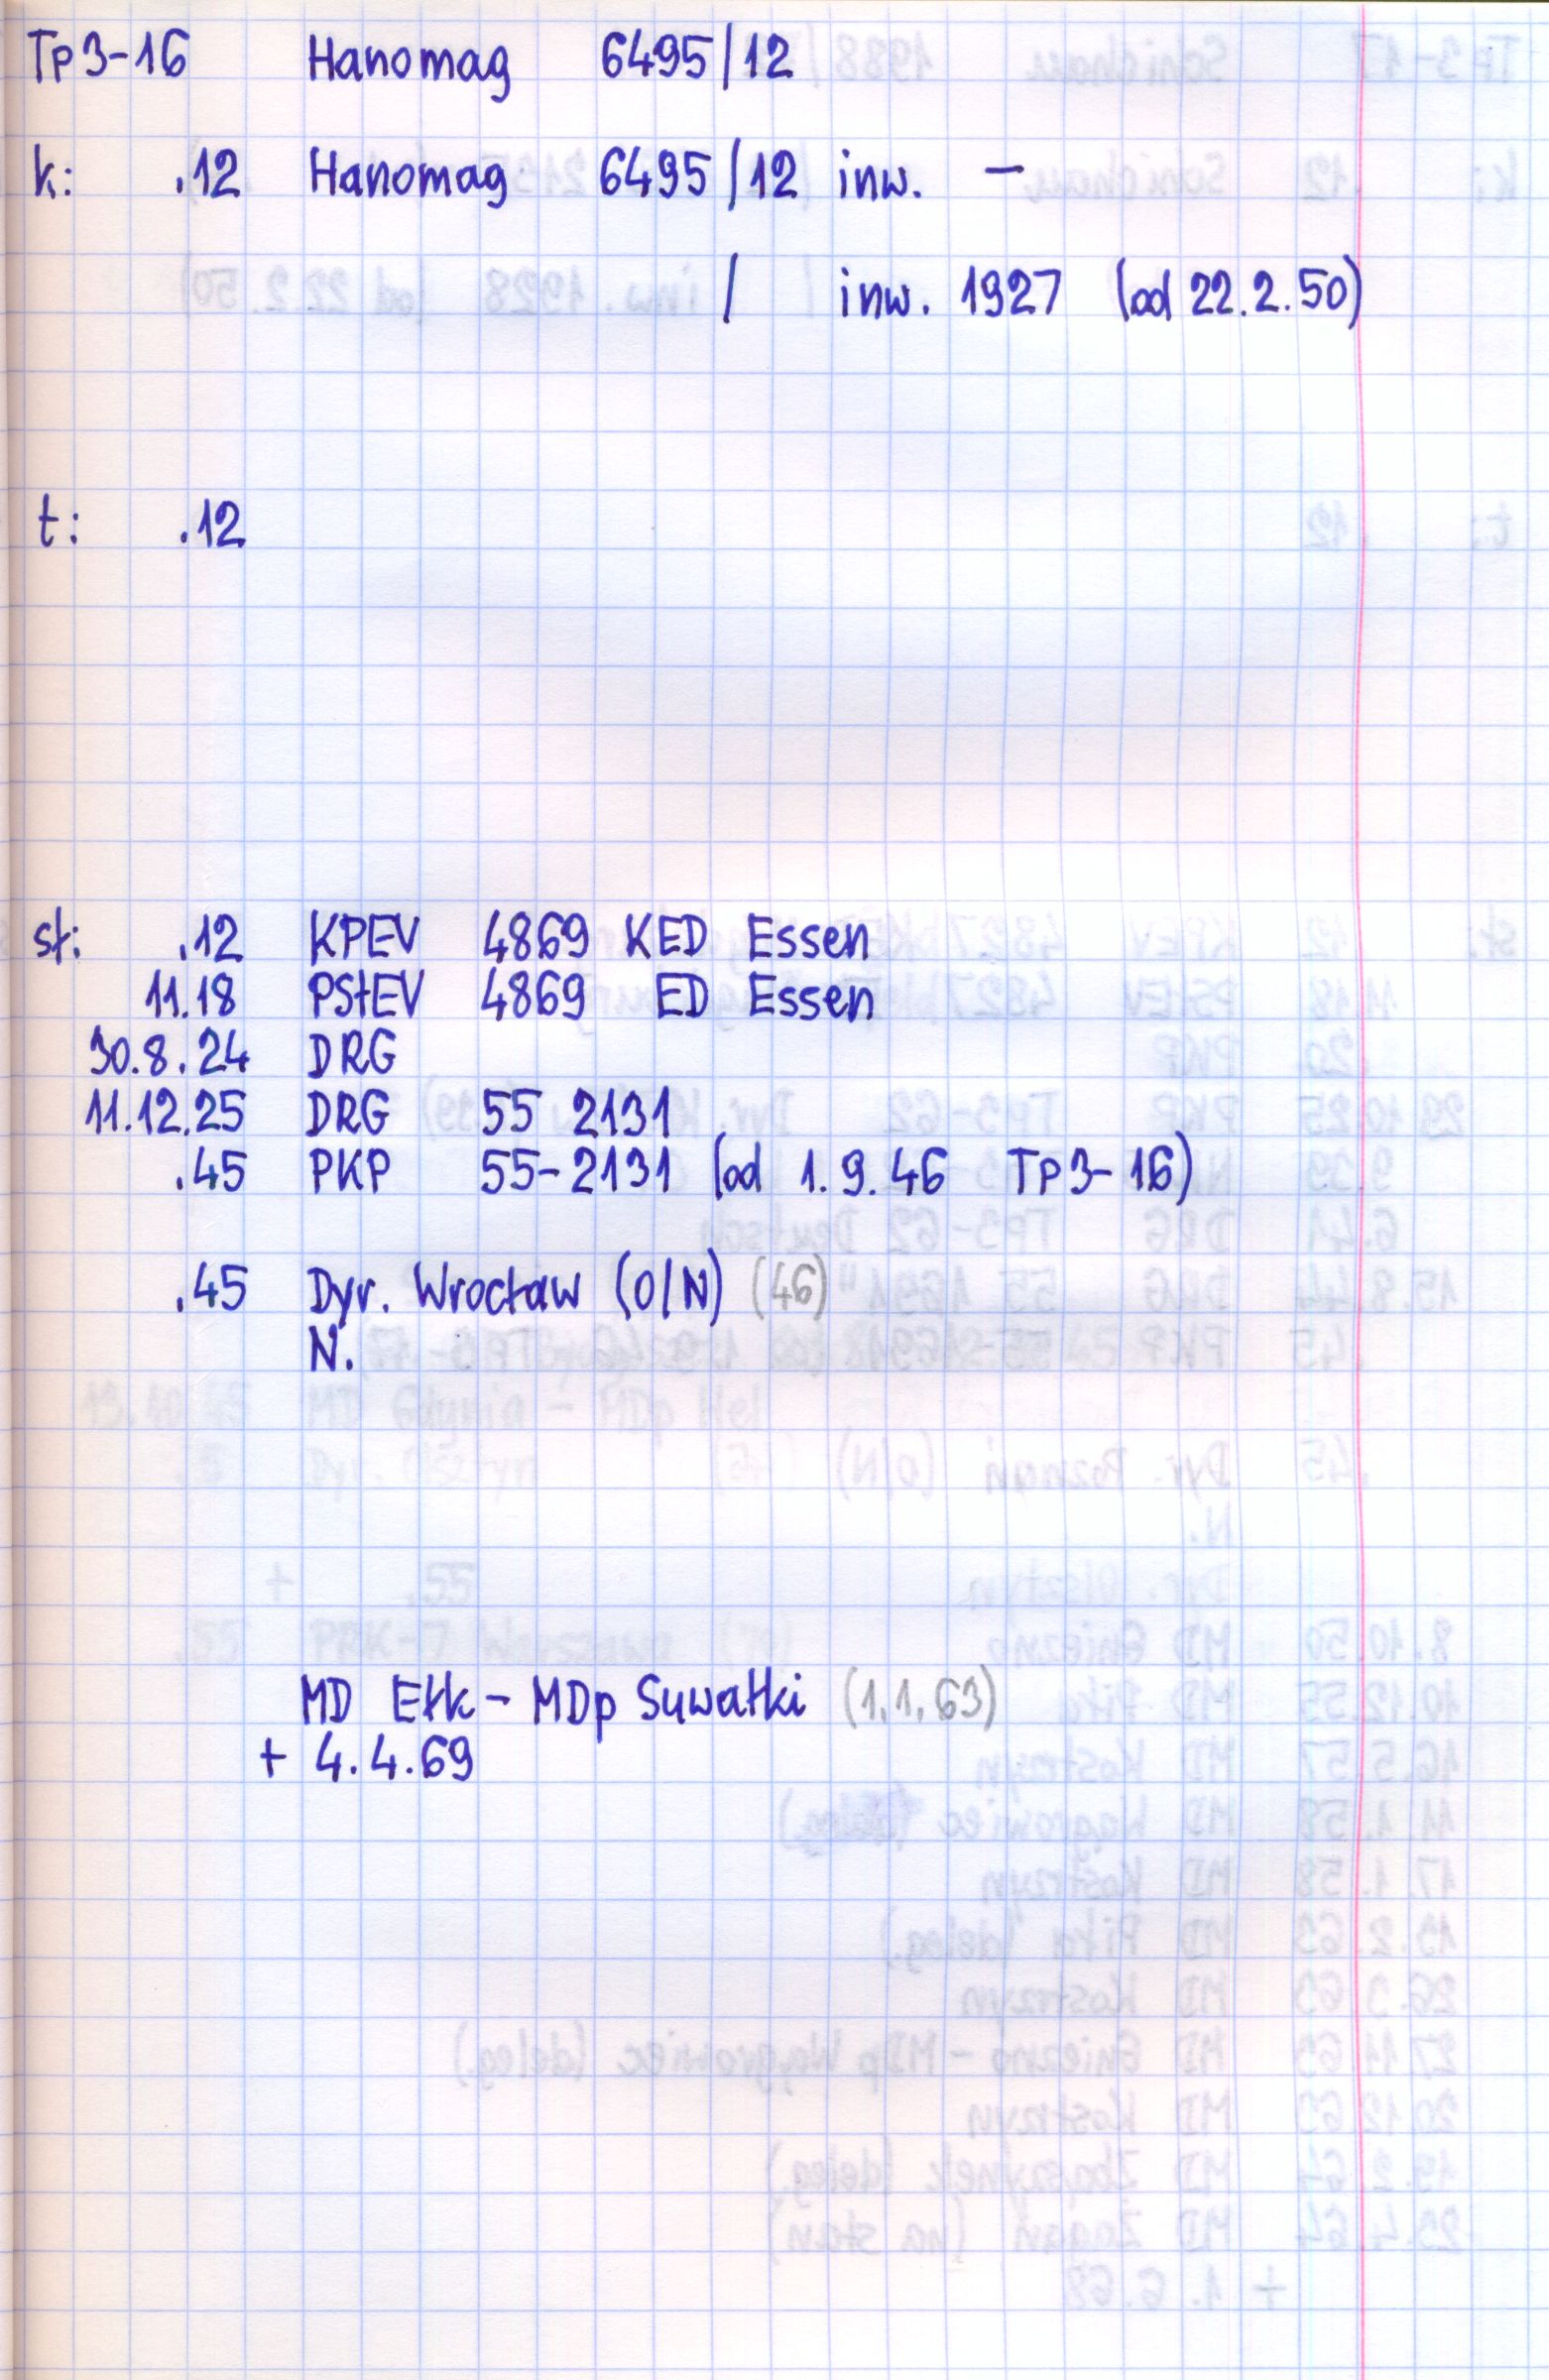 Tp3-16 Hanomag 6495/12
k: .12 Hanomag 6495/12 inw. –
/ inw. 1927 (od 22.2.50)
t: .12
st: .12 KPEV 4869 KED Essen
11.18 PStEV 4869 ED Essen
30.8.24 DRG
11.12.25 DRG 55 2131
.45 PKP 55-2131 (od 1.9.46 Tp3-16)
.45 Dyr. Wrocław (O/N) (46)
N.
MD Ełk – MDp Suwałki (1.1.63)
+ 4.4.69